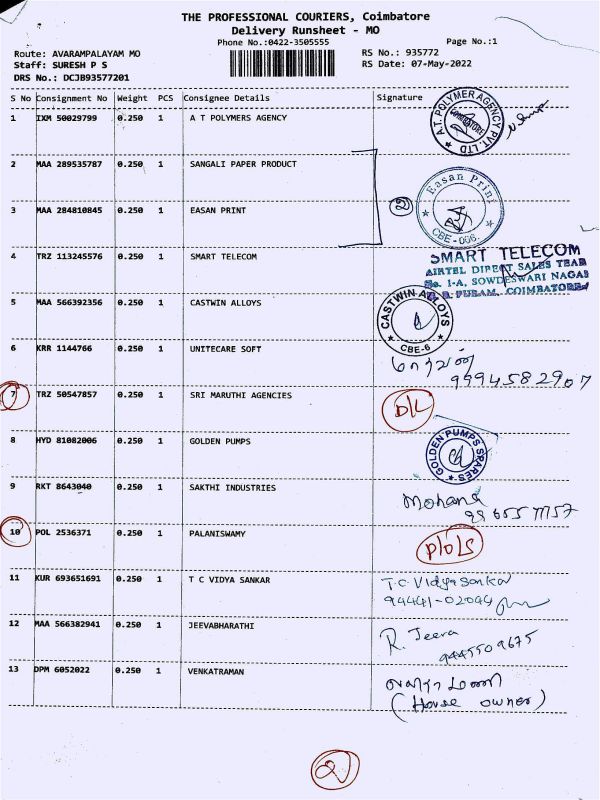 THE PROFESSIONAL COURIERS, Coimbatore
Delivery Runsheet - MO
Phone No.:0422-3505555
Page No.:1
Route: AVARAMPALAYAM MO
RS No.: 935772
Staff: SURESH P S
RS Date: 07-May-2022
DRS No.: DCJB93577201
S No Consignment No Weight PCS Consignee Details Signature
1 IXM 50029799 0.250 1 A T POLYMERS AGENCY
A.T. POLYMER AGENCY PVT. LTD
COIMBATORE
2 MAA 289535787 0.250 1 SANGALI PAPER PRODUCT
3 MAA 284810845 0.250 1 EASAN PRINT
2
Easan Print
CBE-006.
4 TRZ 113245576 0.250 1 SMART TELECOM
SMART TELECOM
AIRTEL DIRECT SALES TEAM
No. 1-A, SOWDESWARI NAGAR
PURAM, COIMBATORE
5 MAA 566392356 0.250 1 CASTWIN ALLOYS
CASTWIN ALLOYS
CBE-6
6 KRR 1144766 0.250 1 UNITECARE SOFT
9994582907
7 TRZ 50547857 0.250 1 SRI MARUTHI AGENCIES
D/L
8 HYD 81082006 0.250 1 GOLDEN PUMPS
GOLDEN PUMPS SPARES
9 RKT 8643040 0.250 1 SAKTHI INDUSTRIES
Mohana
10 POL 2536371 0.250 1 PALANISWAMY
P/O/S
11 KUR 693651691 0.250 1 T C VIDYA SANKAR
T.C. Vidya Sankar
94441-02094
12 MAA 566382941 0.250 1 JEEVABHARATHI
R. Jeeva
9445509675
13 DPM 6052022 0.250 1 VENKATRAMAN
(House owner)
2